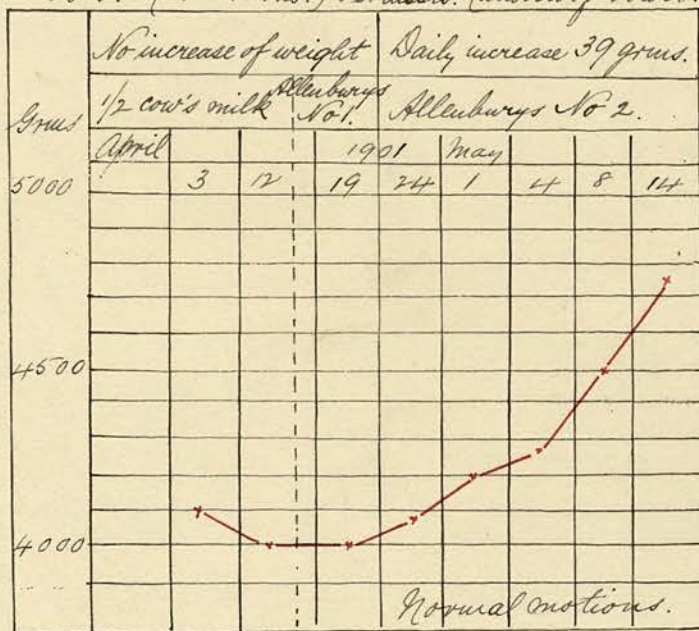 No increase of weight Daily increase 39 grms.
1/2 cow's milk Allenburys No 1. Allenburys No 2.
Grms
April 1901 May
5000 3 12 19 24 1 4 8 14
4500
4000
Normal motions.